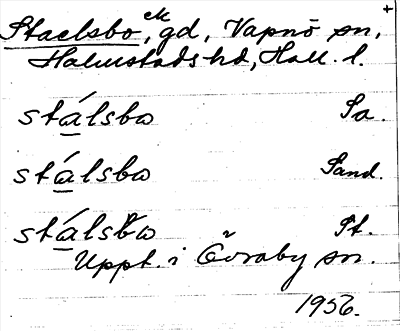 Staelsbo, ek, gd, Vapnö sn, +
Halmstads hd, Hall. l.
stálsbω Sa.
stálsbω Sand.
stálsbω St.
Uppt. i Övraby sn.
1956.